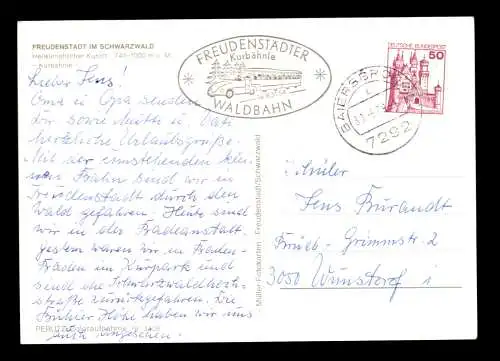 FREUDENSTADT IM SCHWARZWALD
Heilklimatischer Kurort · 740-1000 m ü. M.
- Kurbähnle -
Lieber Jens!
Oma u Opa senden
Dir sowie Mutti u. Vati
herzliche Urlaubsgrüße.
Mit der umstehenden klei-
nen Bahn sind wir in
Freudenstadt durch den
Wald gefahren. Heute sind
wir in der Badeanstalt.
gestern waren wir in Baden-
Baden im Kurpark und
sind die Schwarzwaldhoch-
straße zurückgefahren. Die
Bühler Höhe haben wir uns
auch angesehen.
PERLUTZ-Coloraufnahme
FREUDENSTÄDTER
Kurbähnle
WALDBAHN
BAIERSBRONN
7292
DEUTSCHE BUNDESPOST
50
Müller-Fotokarten · Freudenstadt/Schwarzwald
Schüler
Jens Burandt
Brüder-Grimmstr. 2
3050 Wunstorf 1